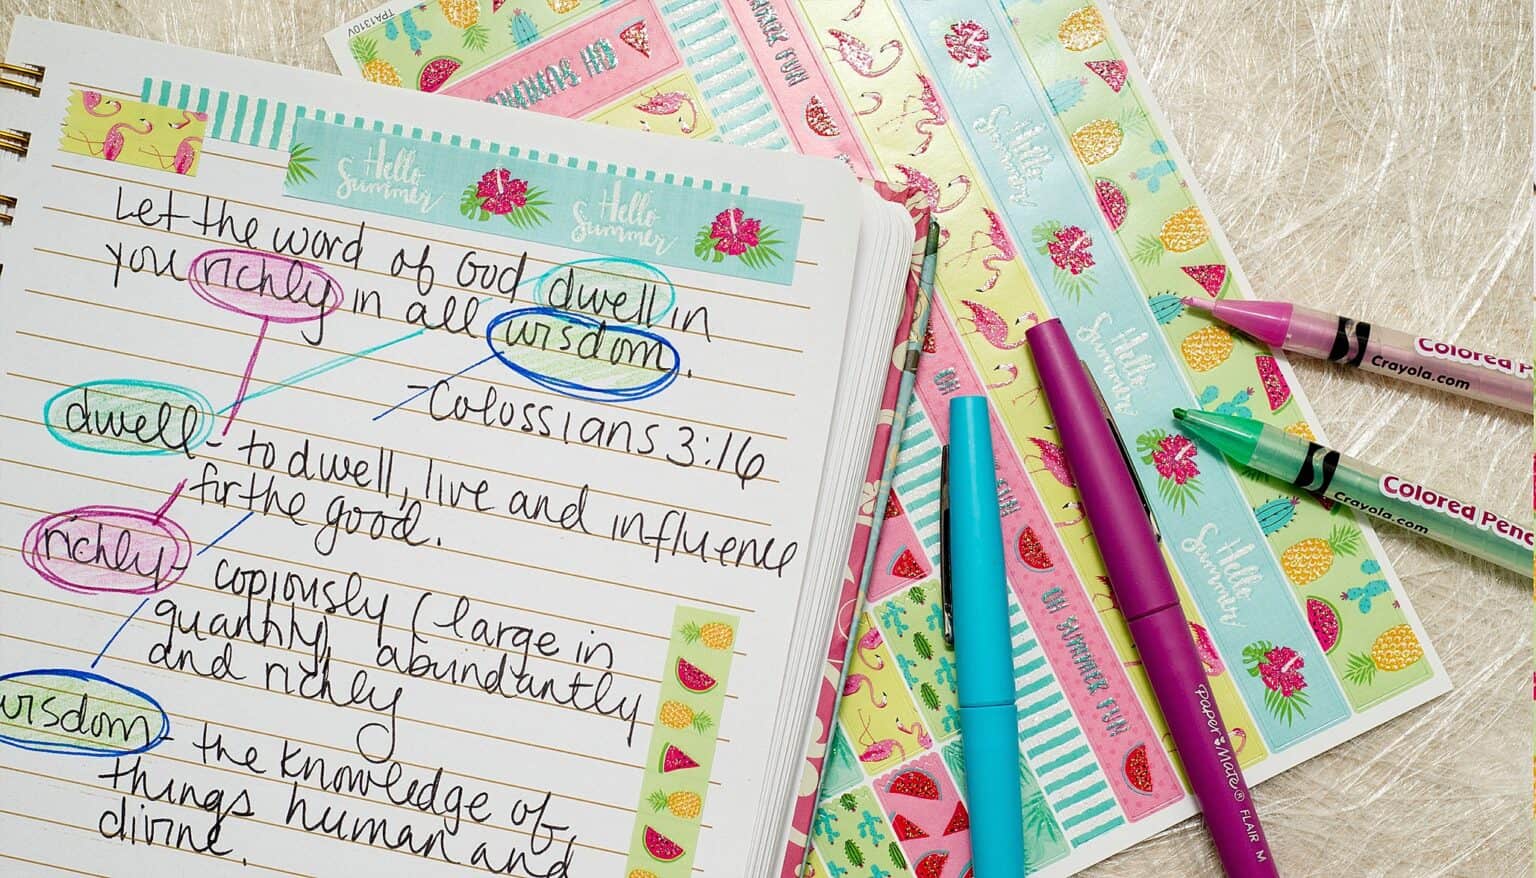 Hello Summer
Hello Summer
Let the word of God dwell in
you richly in all wisdom.
-Colossians 3:16
dwell - to dwell, live and influence
for the good.
richly - copiously (large in
quantity) abundantly
and richly
wisdom - the knowledge of
things human and
divine.
TPA1310V
OH SUMMER
SUMMER FUN
Hello Summer
Hello Summer
Hello Summer
Hello Summer
OH SUMMER FUN
Paper Mate® FLAIR M
Colored P
Crayola.com
Colored Penc
Crayola.com